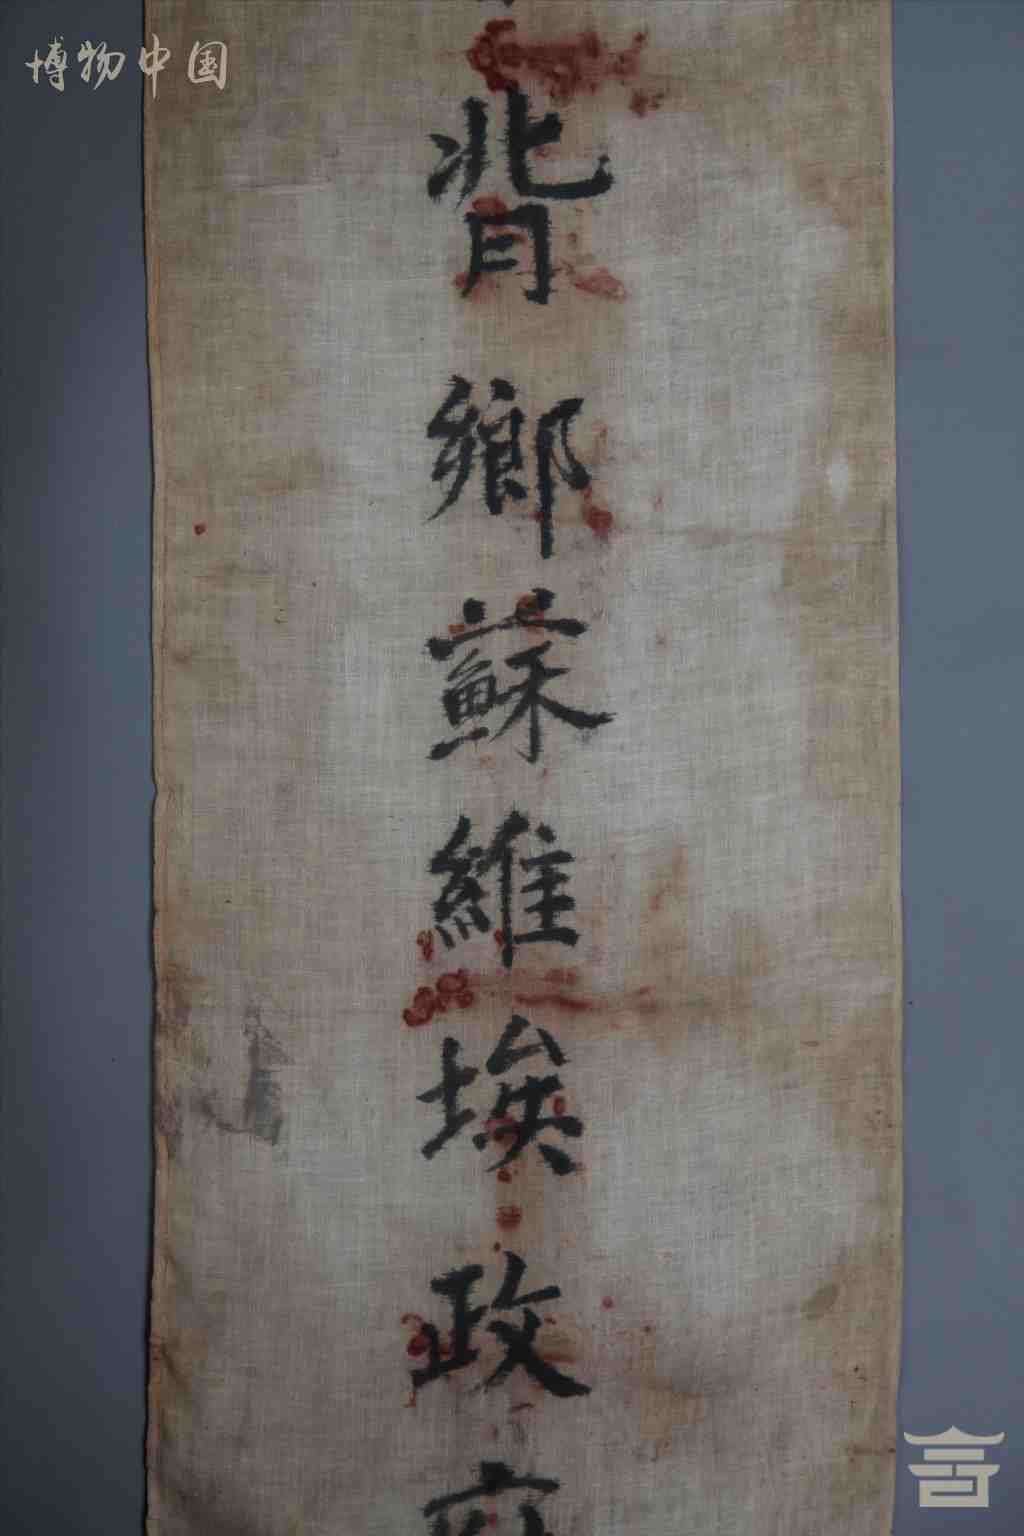 博物中国
背鄉蘇維埃政府